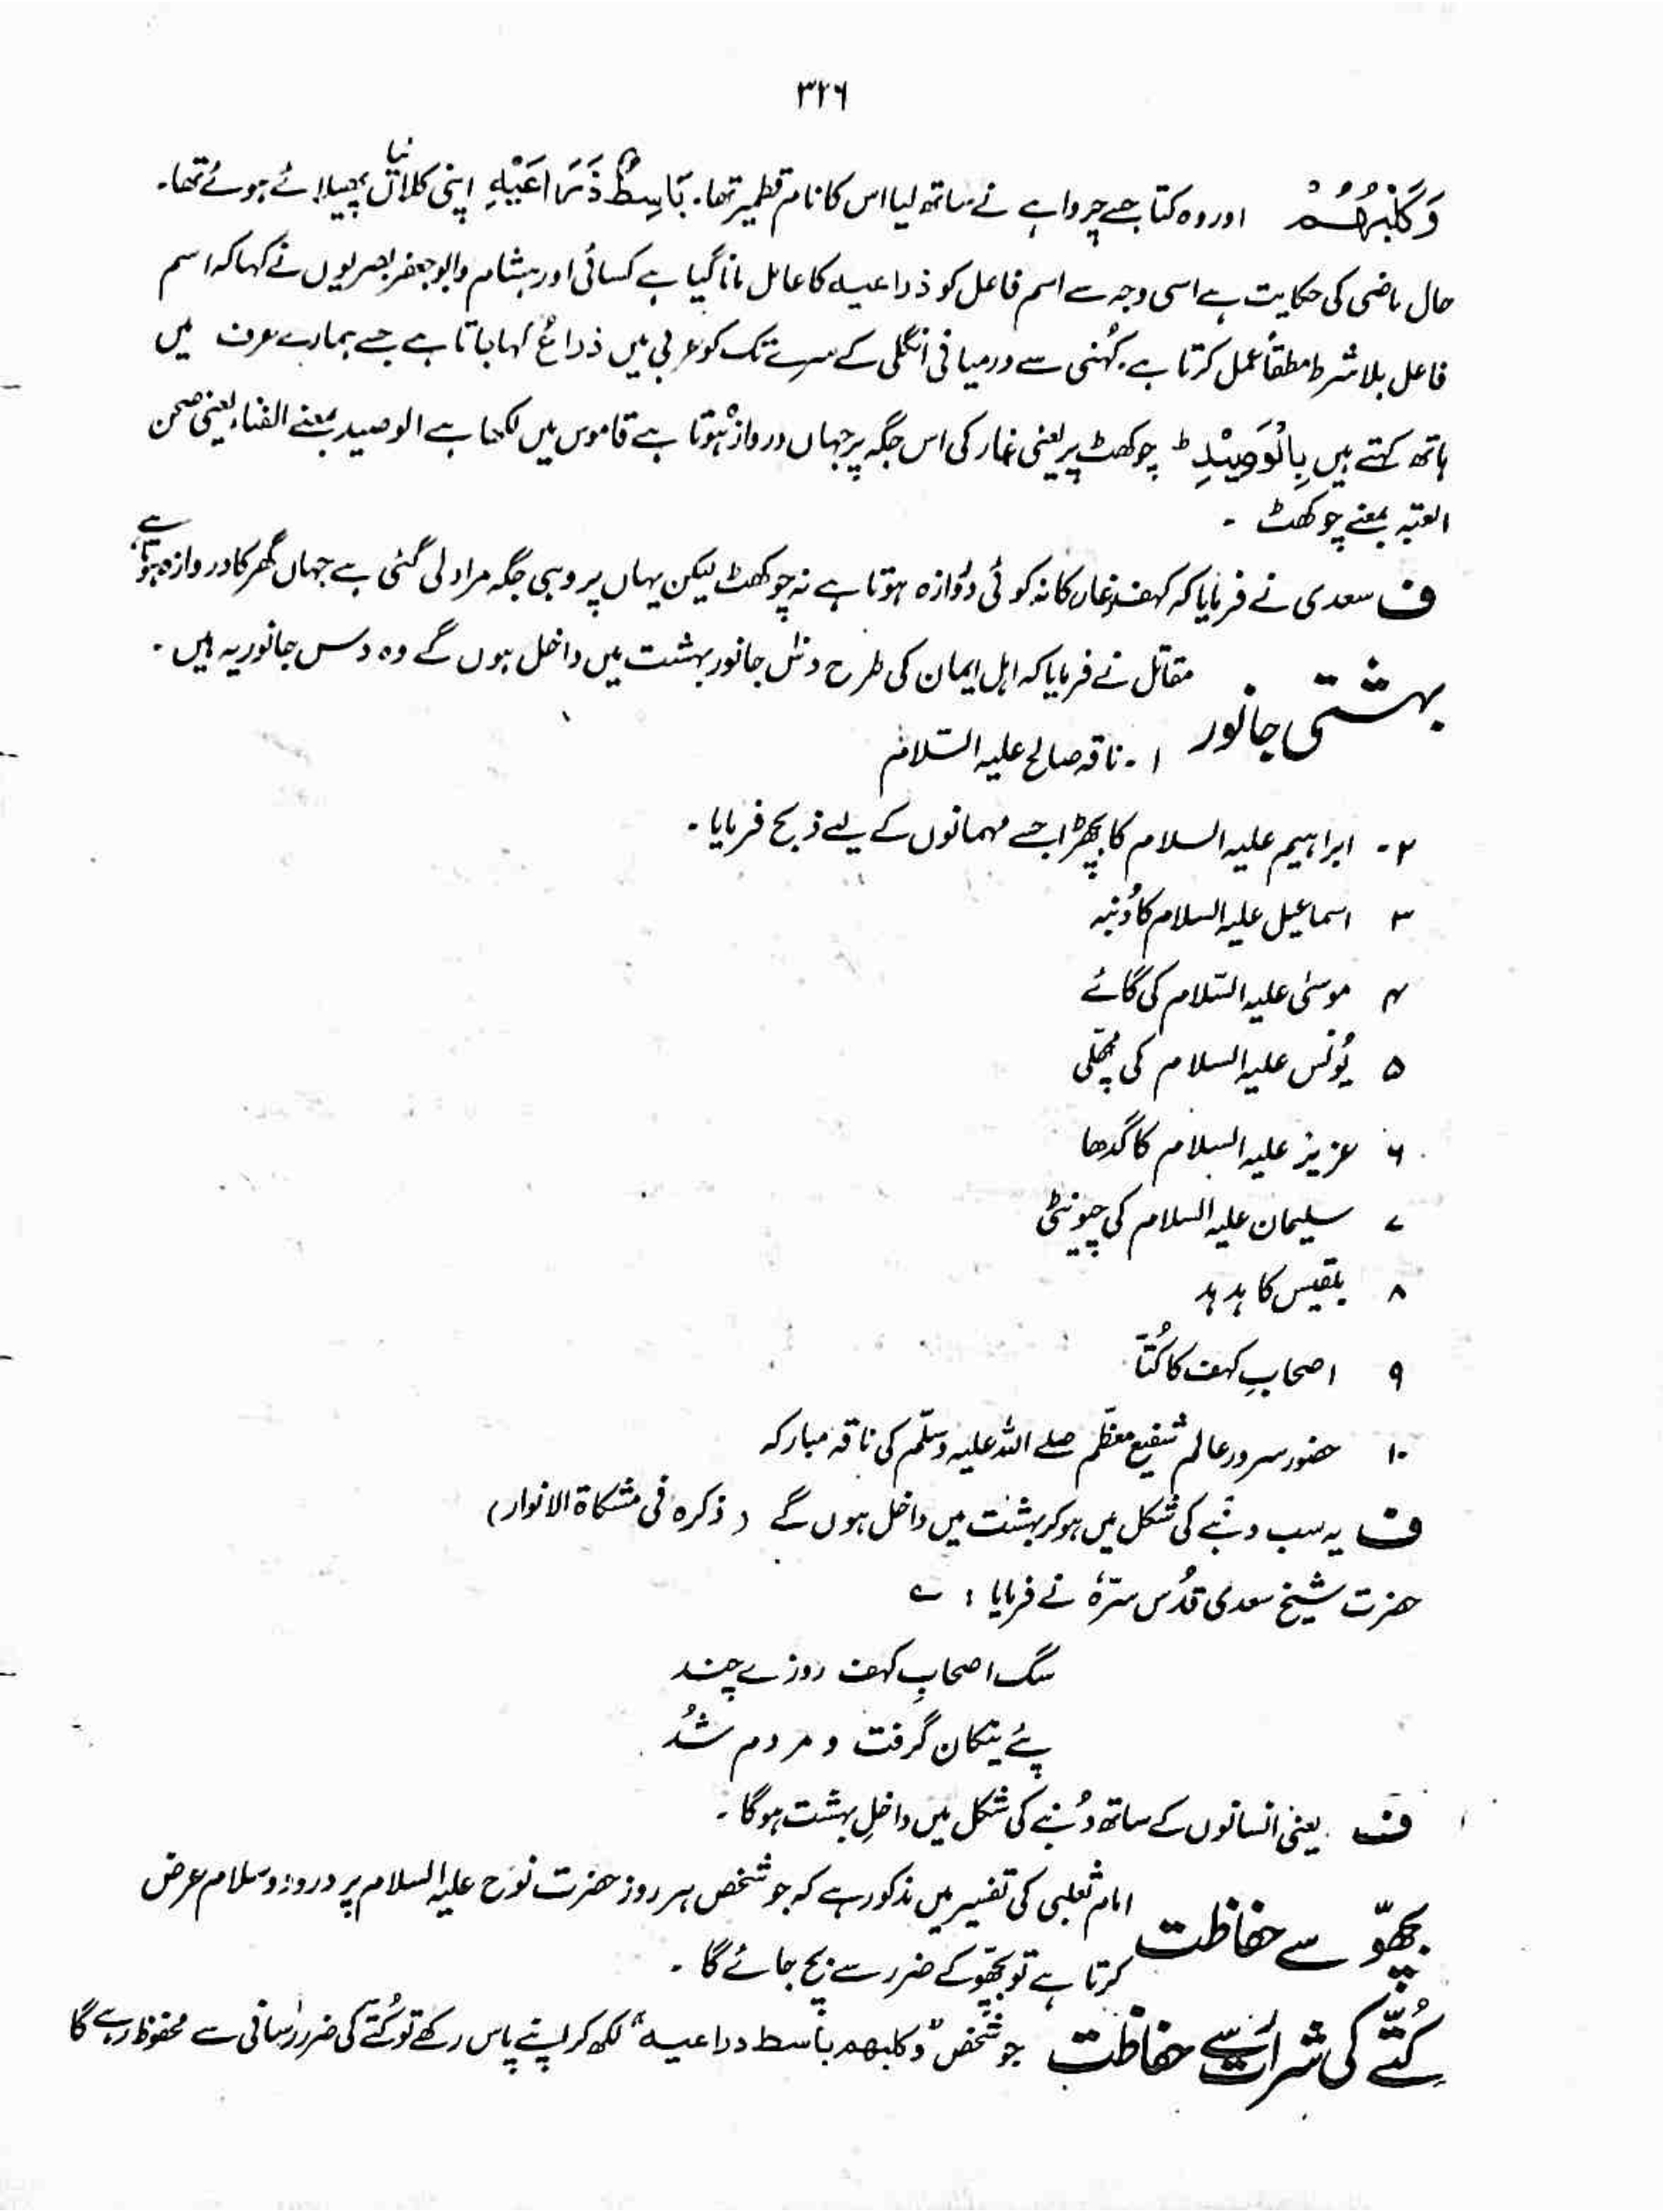 ۳۲۶
وَكَلْبُهُمْ اور وہ کتا جسے چرواہے نے ساتھ لیا اس کا نام قطمیر تھا۔ بَاسِطٌ ذِرَاعَيْهِ اپنی کلائیاں پھیلائے ہوئے تھا۔
حال ماضی کی حکایت ہے اسی وجہ سے اسم فاعل کو ذراعیہ کا عامل مانا گیا ہے کسائی اور ہشام و ابو جعفر بصریوں نے کہا کہ اسم
فاعل بلا شرط مطلقاً عمل کرتا ہے۔ کہُنی سے درمیانی انگلی کے سرے تک کو عربی میں ذراعٌ کہا جاتا ہے جسے ہمارے عرف میں
ہاتھ کہتے ہیں بِالْوَصِيْدِ ط چوکھٹ پر یعنی غار کی اس جگہ پر جہاں دروازہ ہوتا ہے قاموس میں لکھا ہے الوصید بمعنے الفناء یعنی صحن
العتبہ بمعنے چوکھٹ ۔
ف سعدی نے فرمایا کہ کہف و غار کا نہ کوئی دروازہ ہوتا ہے نہ چوکھٹ لیکن یہاں پر وہی جگہ مراد لی گئی ہے جہاں گھر کا دروازہ ہوتا ہے
بہشتی جانور مقاتل نے فرمایا کہ اہل ایمان کی طرح دس جانور بہشت میں داخل ہوں گے وہ دس جانور یہ ہیں ۔
۱ ۔ ناقہ صالح علیہ السّلام
۲ ۔ ابراہیم علیہ السلام کا بچھڑا جسے مہمانوں کے لیے ذبح فرمایا ۔
۳ اسماعیل علیہ السلام کا دُنبہ
۴ موسیٰ علیہ السّلام کی گائے
۵ یُونس علیہ السلام کی مچھلی
۶ عزیز علیہ السلام کا گدھا
۷ سلیمان علیہ السلام کی چیونٹی
۸ بلقیس کا ہدہد
۹ اصحابِ کہف کا کُتّا
۱۰ حضور سرور عالم شفیع معظّم صلے اللہ علیہ وسلّم کی ناقہ مبارکہ
ف یہ سب دنبے کی شکل میں ہو کر بہشت میں داخل ہوں گے (ذکرہ فی مشکاۃ الانوار)
حضرت شیخ سعدی قدُس سّرہٗ نے فرمایا : ے
سگ اصحابِ کہف روزے چند
پئے نیکان گرفت و مردم شُد
ف یعنی انسانوں کے ساتھ دُنبے کی شکل میں داخلِ بہشت ہوگا ۔
بچھّو سے حفاظت امام ثعلبی کی تفسیر میں مذکور ہے کہ جو شخص ہر روز حضرت نوح علیہ السلام پر درود و سلام عرض
کرتا ہے تو بچھّو کے ضرر سے بچ جائے گا ۔
کُتّے کی شرارت سے حفاظت جو شخص "وکلبھم باسط ذراعیہ" لکھ کر اپنے پاس رکھے تو کُتّے کی ضرر رسانی سے محفوظ رہے گا